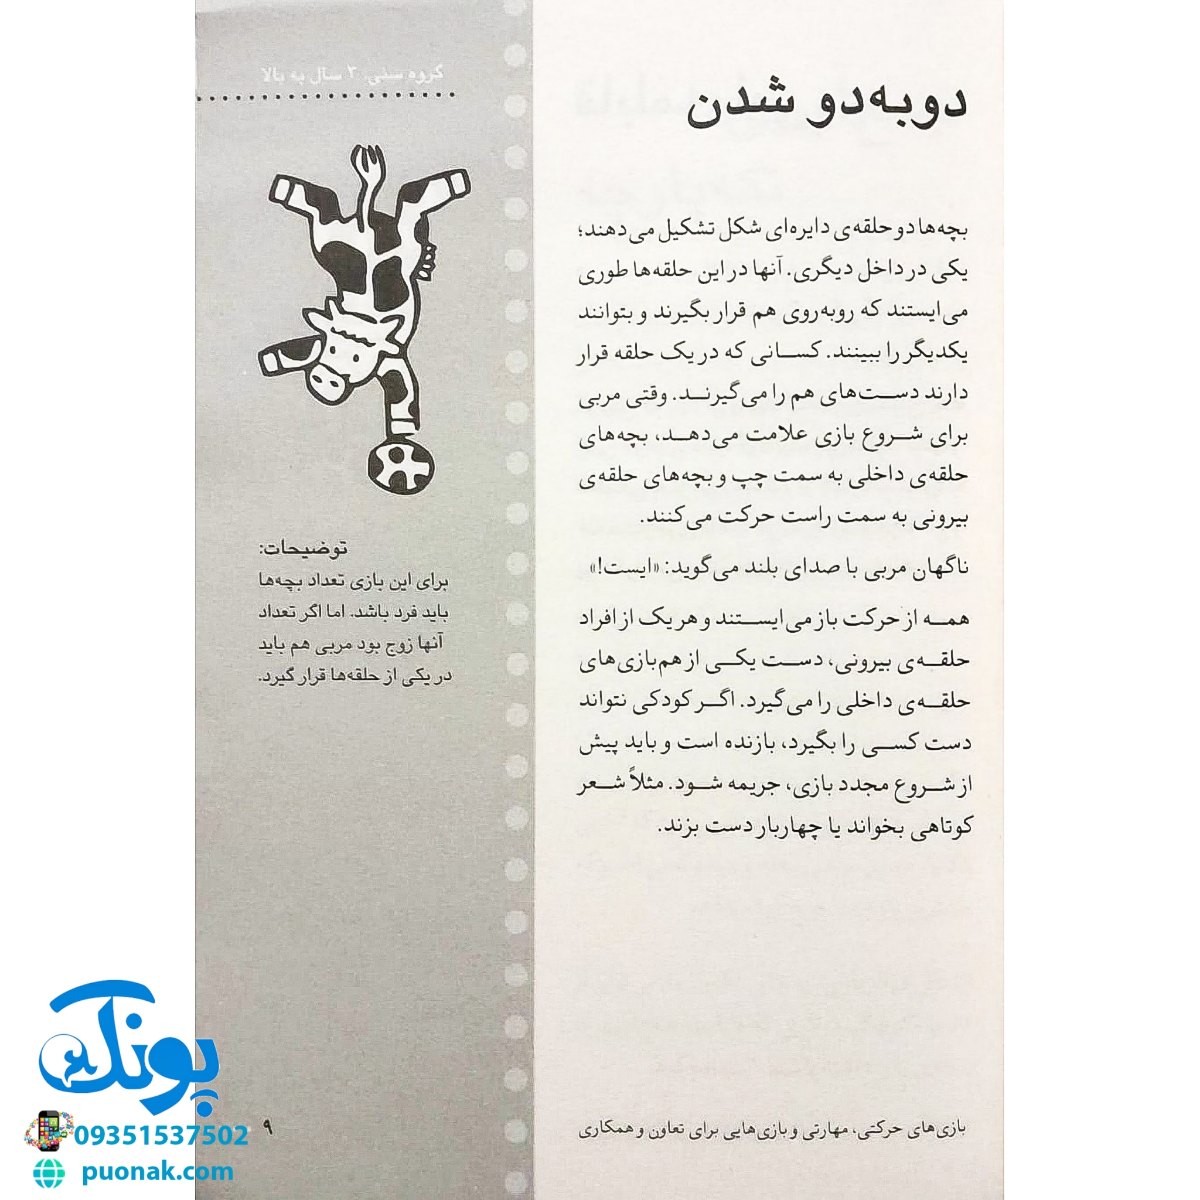 دوبه‌دو شدن
بچه‌ها دو حلقه‌ی دایره‌ای شکل تشکیل می‌دهند؛
یکی در داخل دیگری. آنها در این حلقه‌ها طوری
می‌ایستند که روبه‌روی هم قرار بگیرند و بتوانند
یکدیگر را ببینند. کسانی که در یک حلقه قرار
دارند دست‌های هم را می‌گیرند. وقتی مربی
برای شروع بازی علامت می‌دهد، بچه‌های
حلقه‌ی داخلی به سمت چپ و بچه‌های حلقه‌ی
بیرونی به سمت راست حرکت می‌کنند.
ناگهان مربی با صدای بلند می‌گوید: «ایست!»
همه از حرکت باز می‌ایستند و هر یک از افراد
حلقه‌ی بیرونی، دست یکی از هم‌بازی‌های
حلقه‌ی داخلی را می‌گیرد. اگر کودکی نتواند
دست کسی را بگیرد، بازنده است و باید پیش
از شروع مجدد بازی، جریمه شود. مثلاً شعر
کوتاهی بخواند یا چهاربار دست بزند.
بازی‌های حرکتی، مهارتی و بازی‌هایی برای تعاون و همکاری
گروه سنی: ۳ سال به بالا
توضیحات:
برای این بازی تعداد بچه‌ها
باید فرد باشد. اما اگر تعداد
آنها زوج بود مربی هم باید
در یکی از حلقه‌ها قرار گیرد.
۹
پونک
09351537502
puonak.com